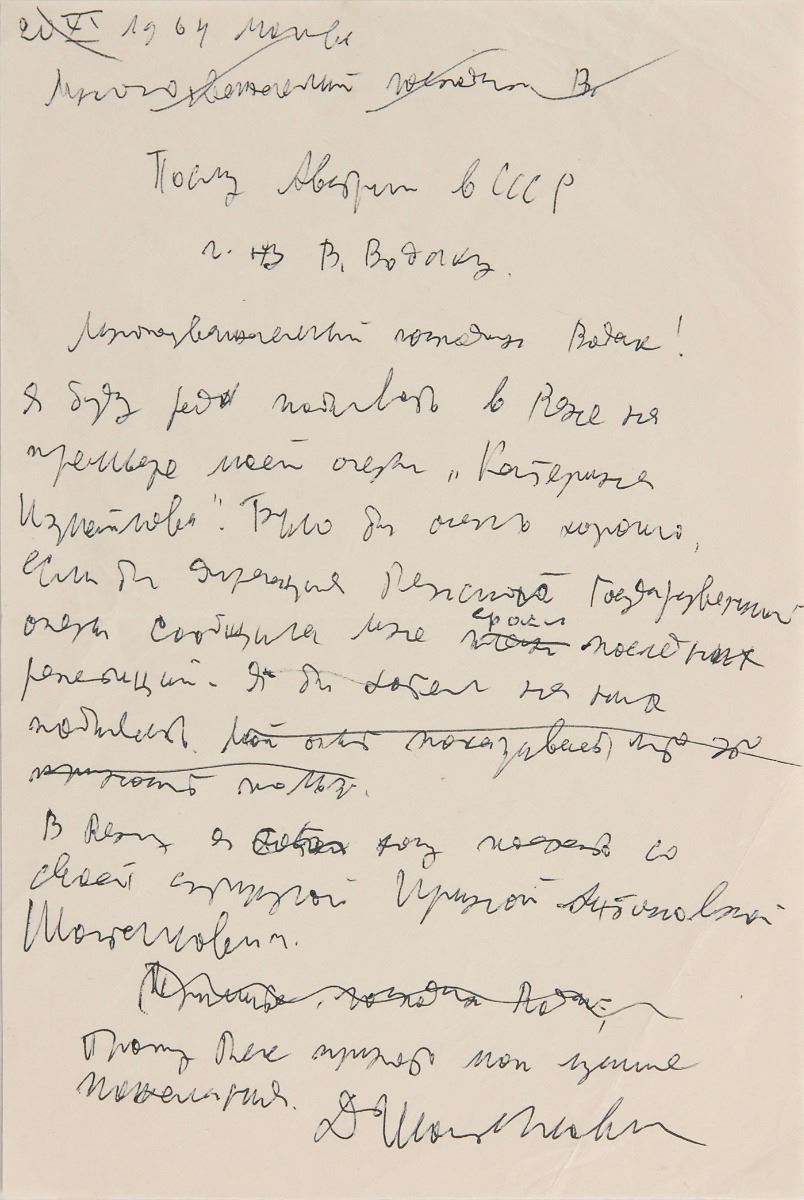 20 XI 1964 Москва
Многоуважаемый господин В
Послу Австрии в СССР
г-ну В. Водаку.
Многоуважаемый господин Водак!
Я буду рад побывать в Вене на
премьере моей оперы „Катерина
Измайлова". Было бы очень хорошо,
если бы дирекция Венской Государственной
оперы сообщила мне сроки последних
репетиций. Я бы хотел на них
побывать. Мой опыт показывает, что это
приносит пользу.
В Вену я хочу поехать со
своей супругой Ириной Антоновной
Шостакович.
Примите, господин Водак,
Прошу Вас принять мои лучшие
пожелания.
Д Шостакович